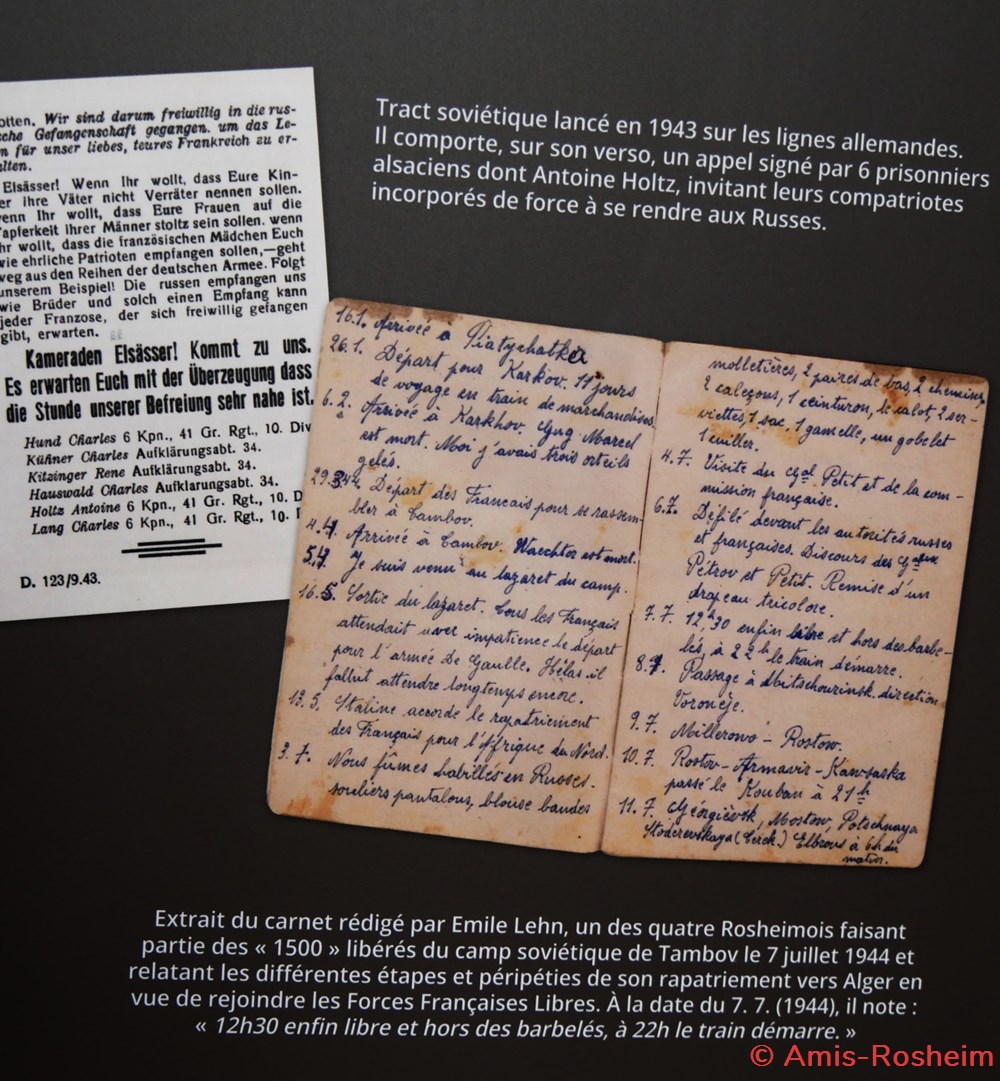 otten. Wir sind darum freiwillig in die rus-
sche Gefangenschaft gegangen. um das Le-
n für unser liebes, teures Frankreich zu er-
alten.
Elsässer! Wenn Ihr wollt, dass Eure Kin-
er ihre Väter nicht Verräter nennen sollen.
wenn Ihr wollt, dass Eure Frauen auf die
Tapferkeit ihrer Männer stoltz sein sollen. wenn
hr wollt, dass die französischen Mädchen Euch
wie ehrliche Patrioten empfangen sollen,—geht
weg aus den Reihen der deutschen Armee. Folgt
unserem Beispiel! Die russen empfangen uns
wie Brüder und solch einen Empfang kann
jeder Franzose, der sich freiwillig gefangen
gibt, erwarten.
Kameraden Elsässer! Kommt zu uns.
Es erwarten Euch mit der Überzeugung dass
die Stunde unserer Befreiung sehr nahe ist.
Hund Charles 6 Kpn., 41 Gr. Rgt., 10. Div
Kühner Charles Aufklärungsabt. 34.
Kitzinger Rene Aufklärungsabt. 34.
Hauswald Charles Aufklarungsabt. 34.
Holtz Antoine 6 Kpn., 41 Gr. Rgt., 10. D
Lang Charles 6 Kpn., 41 Gr. Rgt., 10.
D. 123/9.43.
Tract soviétique lancé en 1943 sur les lignes allemandes.
Il comporte, sur son verso, un appel signé par 6 prisonniers
alsaciens dont Antoine Holtz, invitant leurs compatriotes
incorporés de force à se rendre aux Russes.
16.1. Arrivée à Piatychatka
26.1. Départ pour Karkov. 11 jours
de voyage en train de marchandises.
6.2. Arrivée à Karkhov. Gug Marcel
est mort. Moi j'avais trois orteils
gelés.
29. Départ des Francais pour se rassem-
bler à Tambov.
4.4. Arrivée à Tambov. Waechter est mort.
5.4. Je suis venu au lazaret du camp.
16.5. Sortie du lazaret. Tous les Français
attendait avec impatience le départ
pour l'armée De Gaulle. Hélas il
fallut attendre longtemps encore.
13.5. Staline accorde le rapatriement
des Français pour l'Affrique du Nord.
3.7. Nous fûmes habillés en Russes.
souliers pantalons, blouse bandes
molletières, 2 paires de bas, 2 chemises,
2 caleçons, 1 ceinturon, le calot, 2 ser-
viettes, 1 sac, 1 gamelle, un gobelet
1 cuiller.
4.7. Visite du Gal. Petit et de la com-
mission française.
6.7. Défilé devant les autorités russes
et françaises. Discours des Gaux
Pétrov et Petit. Remise d'un
drapeau tricolore.
7.7. 12h30 enfin libre et hors des barbe-
lés, à 22h le train démarre.
8.7. Passage à Mitschourinsk. direction
Voronèje.
9.7. Millerowo - Rostow.
10.7. Rostov - Armavir - Kawsaska
passé le Kouban à 21h
11.7. Géorgiewsk, Mostow, Potschnaya
Stoderevskaya (Terek.) Elbrous à 6h du
matin.
Extrait du carnet rédigé par Emile Lehn, un des quatre Rosheimois faisant
partie des « 1500 » libérés du camp soviétique de Tambov le 7 juillet 1944 et
relatant les différentes étapes et péripéties de son rapatriement vers Alger en
vue de rejoindre les Forces Françaises Libres. À la date du 7. 7. (1944), il note :
« 12h30 enfin libre et hors des barbelés, à 22h le train démarre. »
© Amis-Rosheim